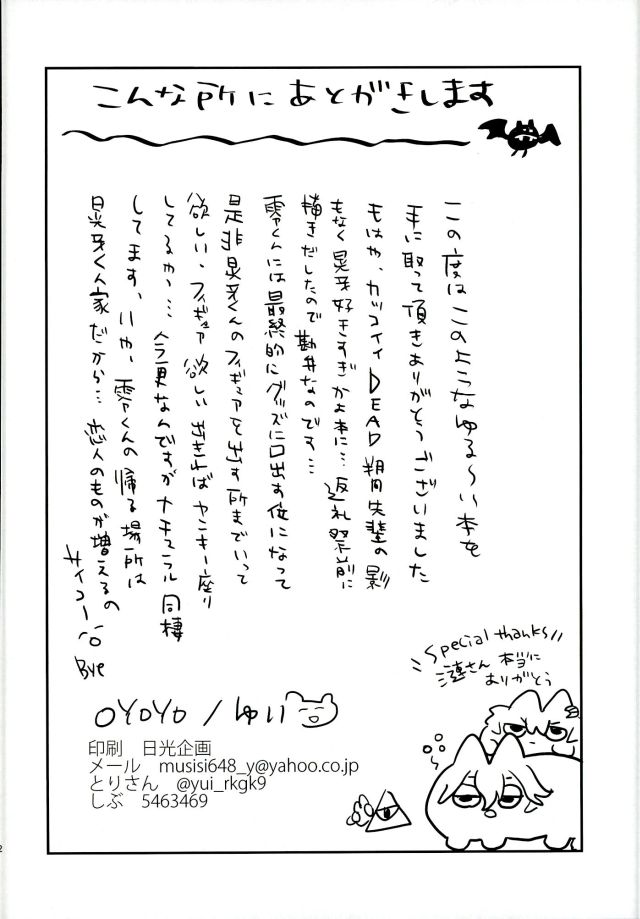 こんな所にあとがきします
この度はこのようなゆる～い本を
手に取って頂きありがとうございました
もはや、カッコイイDEAD朔間先輩の影
もなく晃牙好きすぎかよ本に… 返礼祭前に
描きだしたので勘弁なのです…
零くんには最終的にグッズに口出す位になって
是非晃牙くんのフィギュアを出す所までいって
欲しい、フィギュア欲しい 出きればヤンキー座り
してるやつ… 今更なんですがナチュラル同棲
してます、いや、零くんの帰る場所は
晃牙くん家だから… 恋人のものが増えるの
サイコー
Bye
Special thanks!!
さん 本当に
ありがとう
OYOYO / ゆい
印刷 日光企画
メール musisi648_y@yahoo.co.jp
とりさん @yui_rkgk9
しぶ 5463469
2